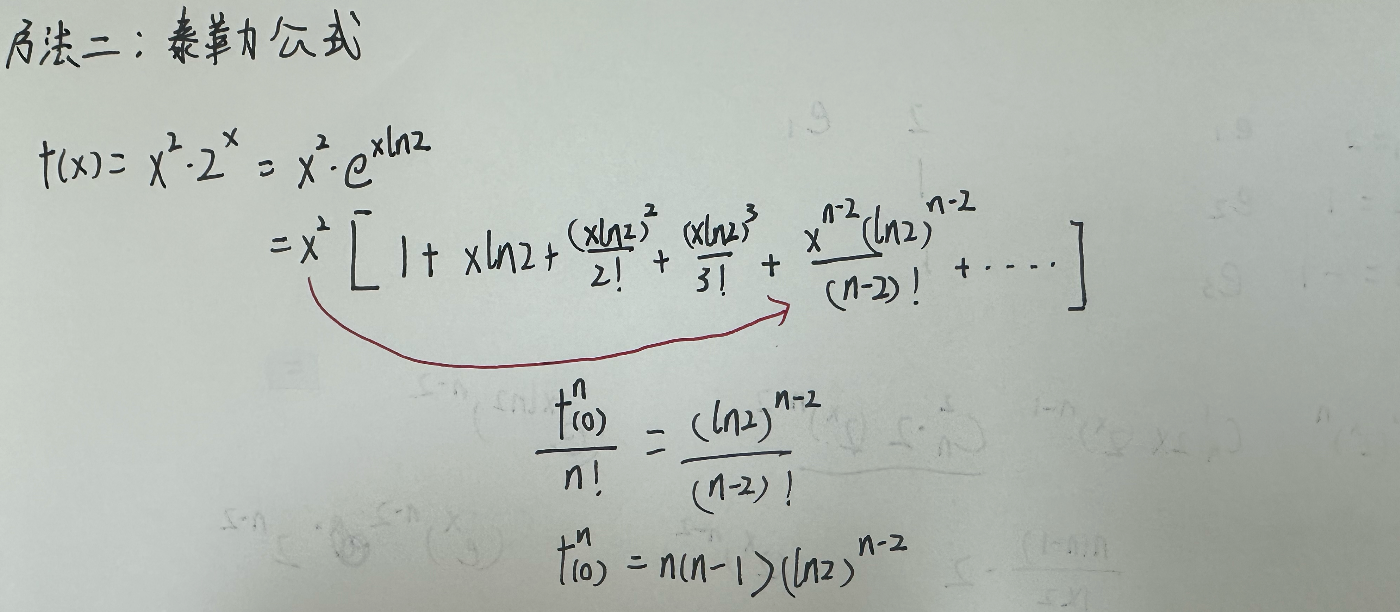 方法二：泰勒公式
f(x) = x²·2ˣ = x²·e^{xln2}
= x² [ 1 + xln2 + (xln2)²/2! + (xln2)³/3! + x^{n-2}(ln2)^{n-2}/(n-2)! + ····· ]
fⁿ(0)/n! = (ln2)^{n-2}/(n-2)!
fⁿ(0) = n(n-1)(ln2)^{n-2}